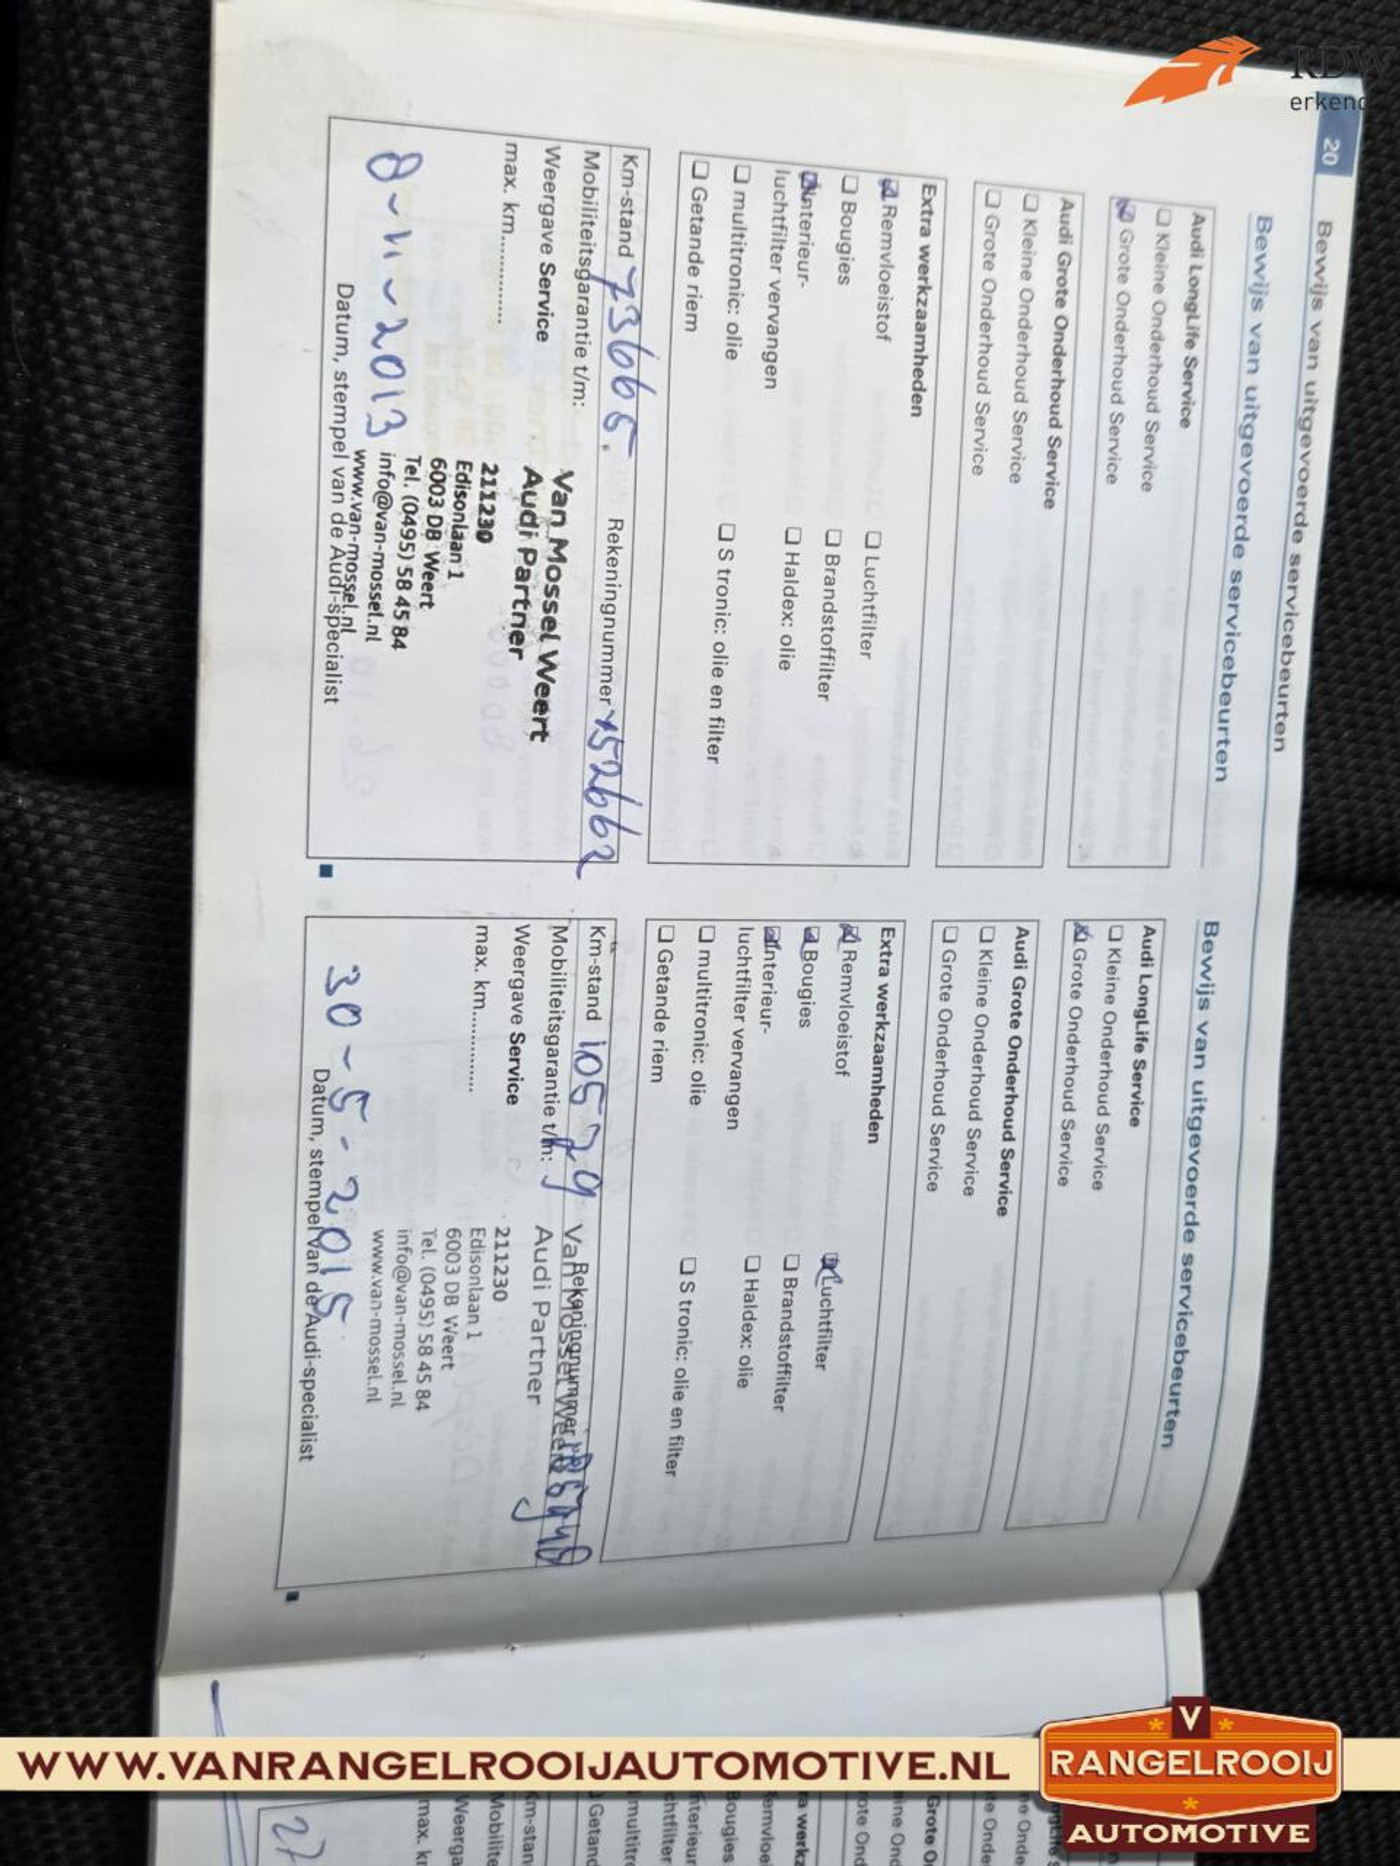 20
Bewijs van uitgevoerde servicebeurten
Bewijs van uitgevoerde servicebeurten
Audi LongLife Service
Kleine Onderhoud Service
Grote Onderhoud Service
Audi Grote Onderhoud Service
Kleine Onderhoud Service
Grote Onderhoud Service
Extra werkzaamheden
Remvloeistof
Luchtfilter
Bougies
Brandstoffilter
Interieur-
luchtfilter vervangen
Haldex: olie
multitronic: olie
S tronic: olie en filter
Getande riem
Km-stand 73665. Rekeningnummer
Mobiliteitsgarantie t/m:
Weergave Service
max. km.............
Van Mossel Weert
Audi Partner
211230
Edisonlaan 1
6003 DB Weert
Tel. (0495) 58 45 84
info@van-mossel.nl
www.van-mossel.nl
8-11-2013
Datum, stempel van de Audi-specialist
Bewijs van uitgevoerde servicebeurten
Audi LongLife Service
Kleine Onderhoud Service
Grote Onderhoud Service
Audi Grote Onderhoud Service
Kleine Onderhoud Service
Grote Onderhoud Service
Extra werkzaamheden
Remvloeistof
Luchtfilter
Bougies
Brandstoffilter
Interieur-
luchtfilter vervangen
Haldex: olie
multitronic: olie
S tronic: olie en filter
Getande riem
Km-stand Rekeningnummer
Mobiliteitsgarantie t/m:
Weergave Service
max. km.............
Van Mossel Weert
Audi Partner
211230
Edisonlaan 1
6003 DB Weert
Tel. (0495) 58 45 84
info@van-mossel.nl
www.van-mossel.nl
30-5-2015
Datum, stempel van de Audi-specialist
27
RDW
erkend
WWW.VANRANGELROOIJAUTOMOTIVE.NL
V
RANGELROOIJ
AUTOMOTIVE